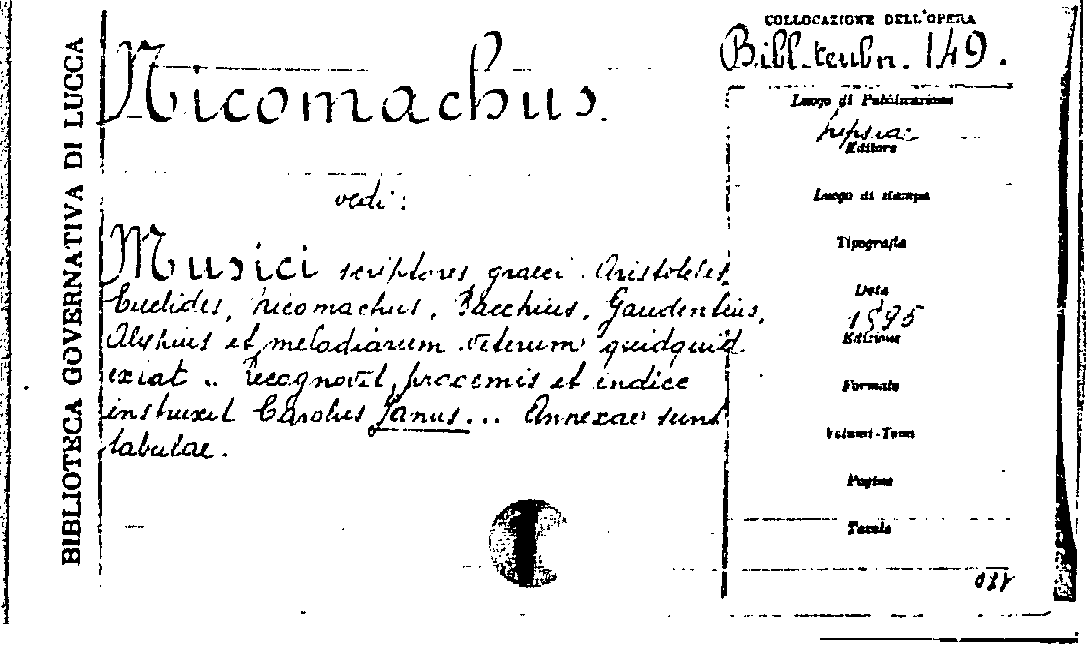 BIBLIOTECA GOVERNATIVA DI LUCCA
COLLOCAZIONE DELL'OPERA
Bibl. teubn. 149.
Nicomachus.
vedi:
Musici scriptores graeci. Aristoteles,
Euclides, Nicomachus, Bacchius, Gaudentius,
Alypius et melodiarum veterum quidquid
exstat .. Recognovit, prooemis et indice
instruxit Carolus Janus... Annexae sunt
tabulae.
Luogo di Pubblicazione
Lipsiae
Editore
Luogo di stampa
Tipografia
Data
1895
Edizione
Formato
Volumi-Tomi
Pagine
Tavole